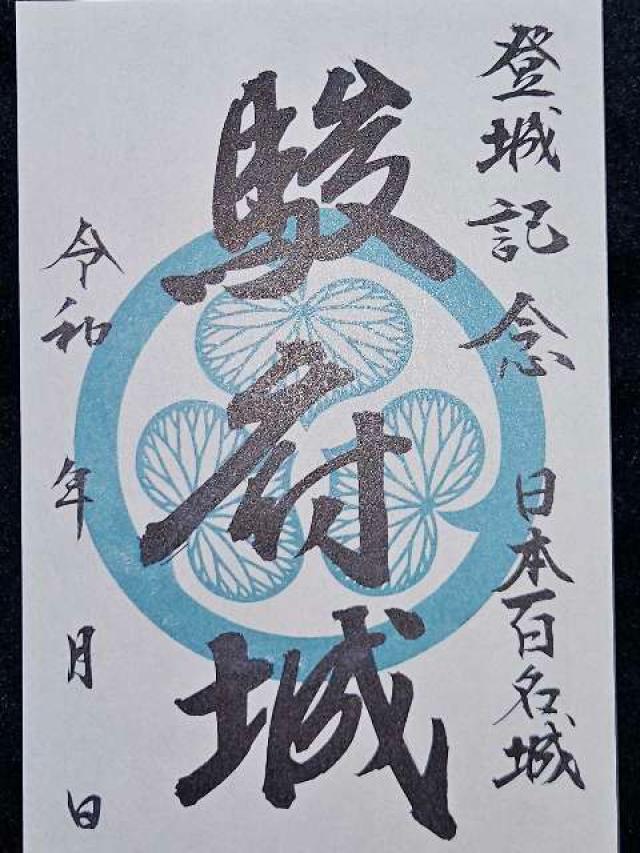 登城記念 日本百名城
駿府城
令和 年 月 日